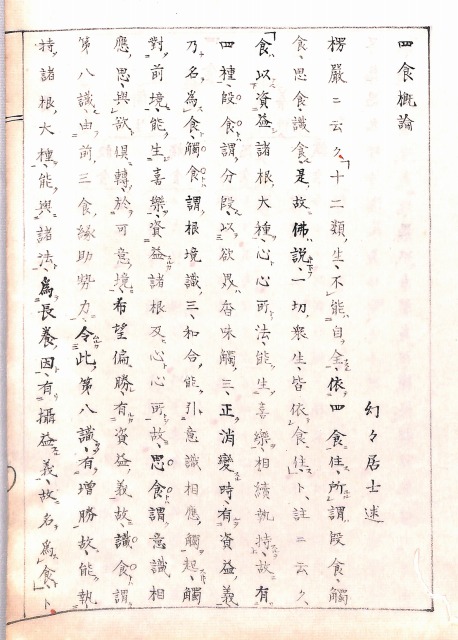 四食概論
幻々居士述
楞嚴ニ云ク、「十二類生、不能自全、依四食住、所謂段食、觸
食、思食、識食、是故佛說、一切衆生、皆依食住」ト、註ニ云ク、
「食、以資益諸根大種、心心所法、能生喜樂、相續執持故、有
四種、段食、謂分段、以欲界香味觸三、正消變時、有資益義
乃名為食、觸食、謂根境識三和合、能引意識相應觸起、觸
對前境、能生喜樂、資益諸根及心心所故、思食、謂意識相
應思、與欲俱轉、於可意境、希望偏勝、有資益義故、識食、謂
第八識、由前三食緣助勢力、令此第八識、有增勝故、能執
持諸根大種、能與諸法、為長養因、有攝益義、故名為食」ト、